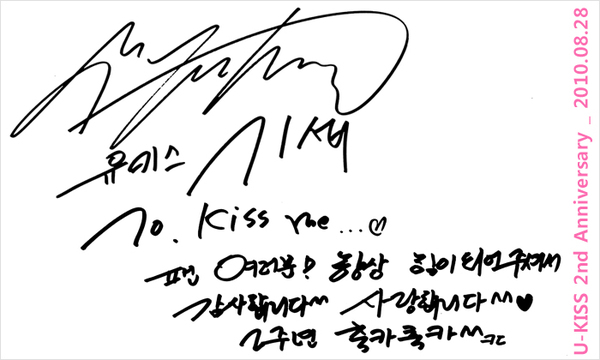 유키스 기섭
To. Kiss me...♡
팬 여러분! 항상 힘이 되어주셔서
감사합니다^^ 사랑합니다^^♥
2주년 축카축카^^ㅋㄷ
U-KISS 2nd Anniversary _ 2010.08.28